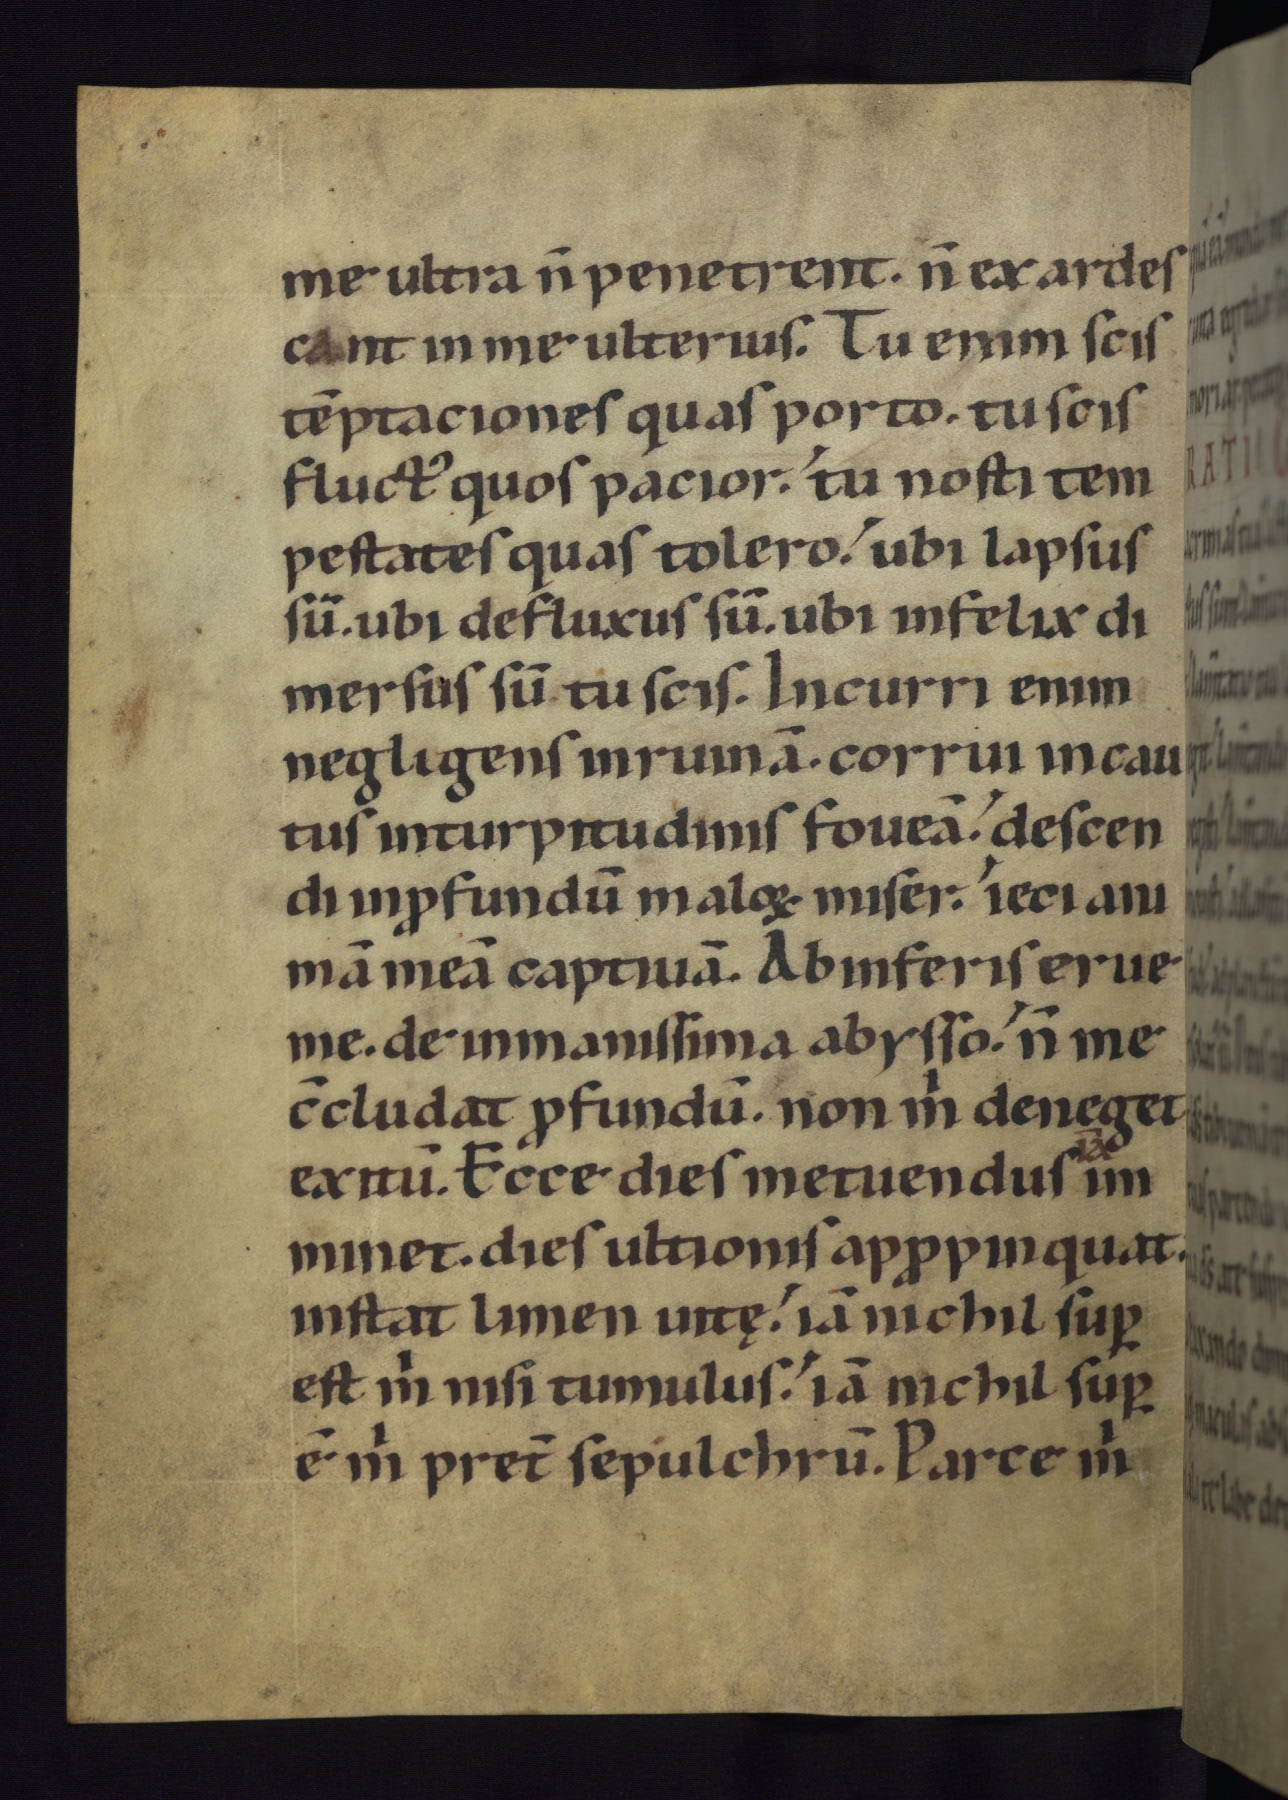 me ultra n̄ penetrent. n̄ exardeſ
cant in me ulteriuſ. Tu enim ſciſ
tēptacioneſ quaſ porto. tu ſciſ
fluctꝰ quoſ pacior. tu noſti tem
peſtateſ quaſ tolero. ubi lapſuſ
ſū. ubi defluxuſ ſū. ubi infelix di
merſuſ ſū tu ſciſ. Incurri enim
negligenſ inruinā. corrui incau
tuſ inturpitudiniſ foueā. deſcen
di inꝓfundū maloꝝ miſer. ieci ani
mā meā captiuā. Ab inferiſ erue
me. de inmaniſſima abyſſo. n̄ me
c̄cludat ꝓfundū. non m̍ deneget
exitū. Ecce dieſ metuenduſ im
minet. dieſ ultioniſ apꝓpinquat.
inſtat limen uitę. iā nichil ſuꝑ
eſt m̍ niſi tumuluſ. iā nichil ſuꝑ
ē m̍ pret̄ ſepulchrū. Parce m̍